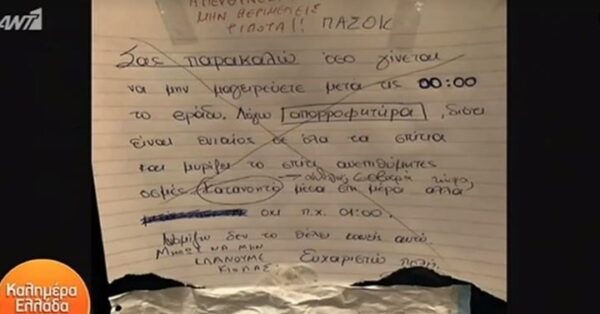 ANT1
ΜΗΝ ΠΕΡΙΜΕΝΕΙΣ
ΤΙΠΟΤΑ!! ΠΑΣΟΚ
Σας παρακαλώ όσο γίνεται
να μην μαγειρεύετε μετά τις 00:00
το βράδυ. Λόγω απορροφητήρα, διότι
είναι ενιαίος σε όλα τα σπίτια
και μυρίζει το σπίτι ανεπιθύμητες
οσμές. Κατανοητό μέσα στη μέρα αλλά
οχι π.χ. 01:00.
Νομίζω δεν το θέλει κανείς αυτό.
ΜΗΠΩΣ ΝΑ ΜΗΝ
ΚΛΑΝΟΥΜΕ
ΚΙΟΛΑΣ; Ευχαριστώ πολύ.
Καλημέρα
Ελλάδα